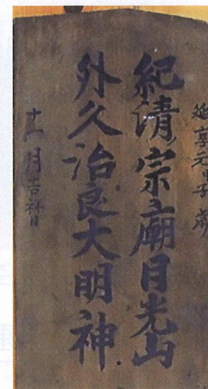 延享元甲子歳
紀清宗廟日光山
外久治良大明神
十一月吉祥日